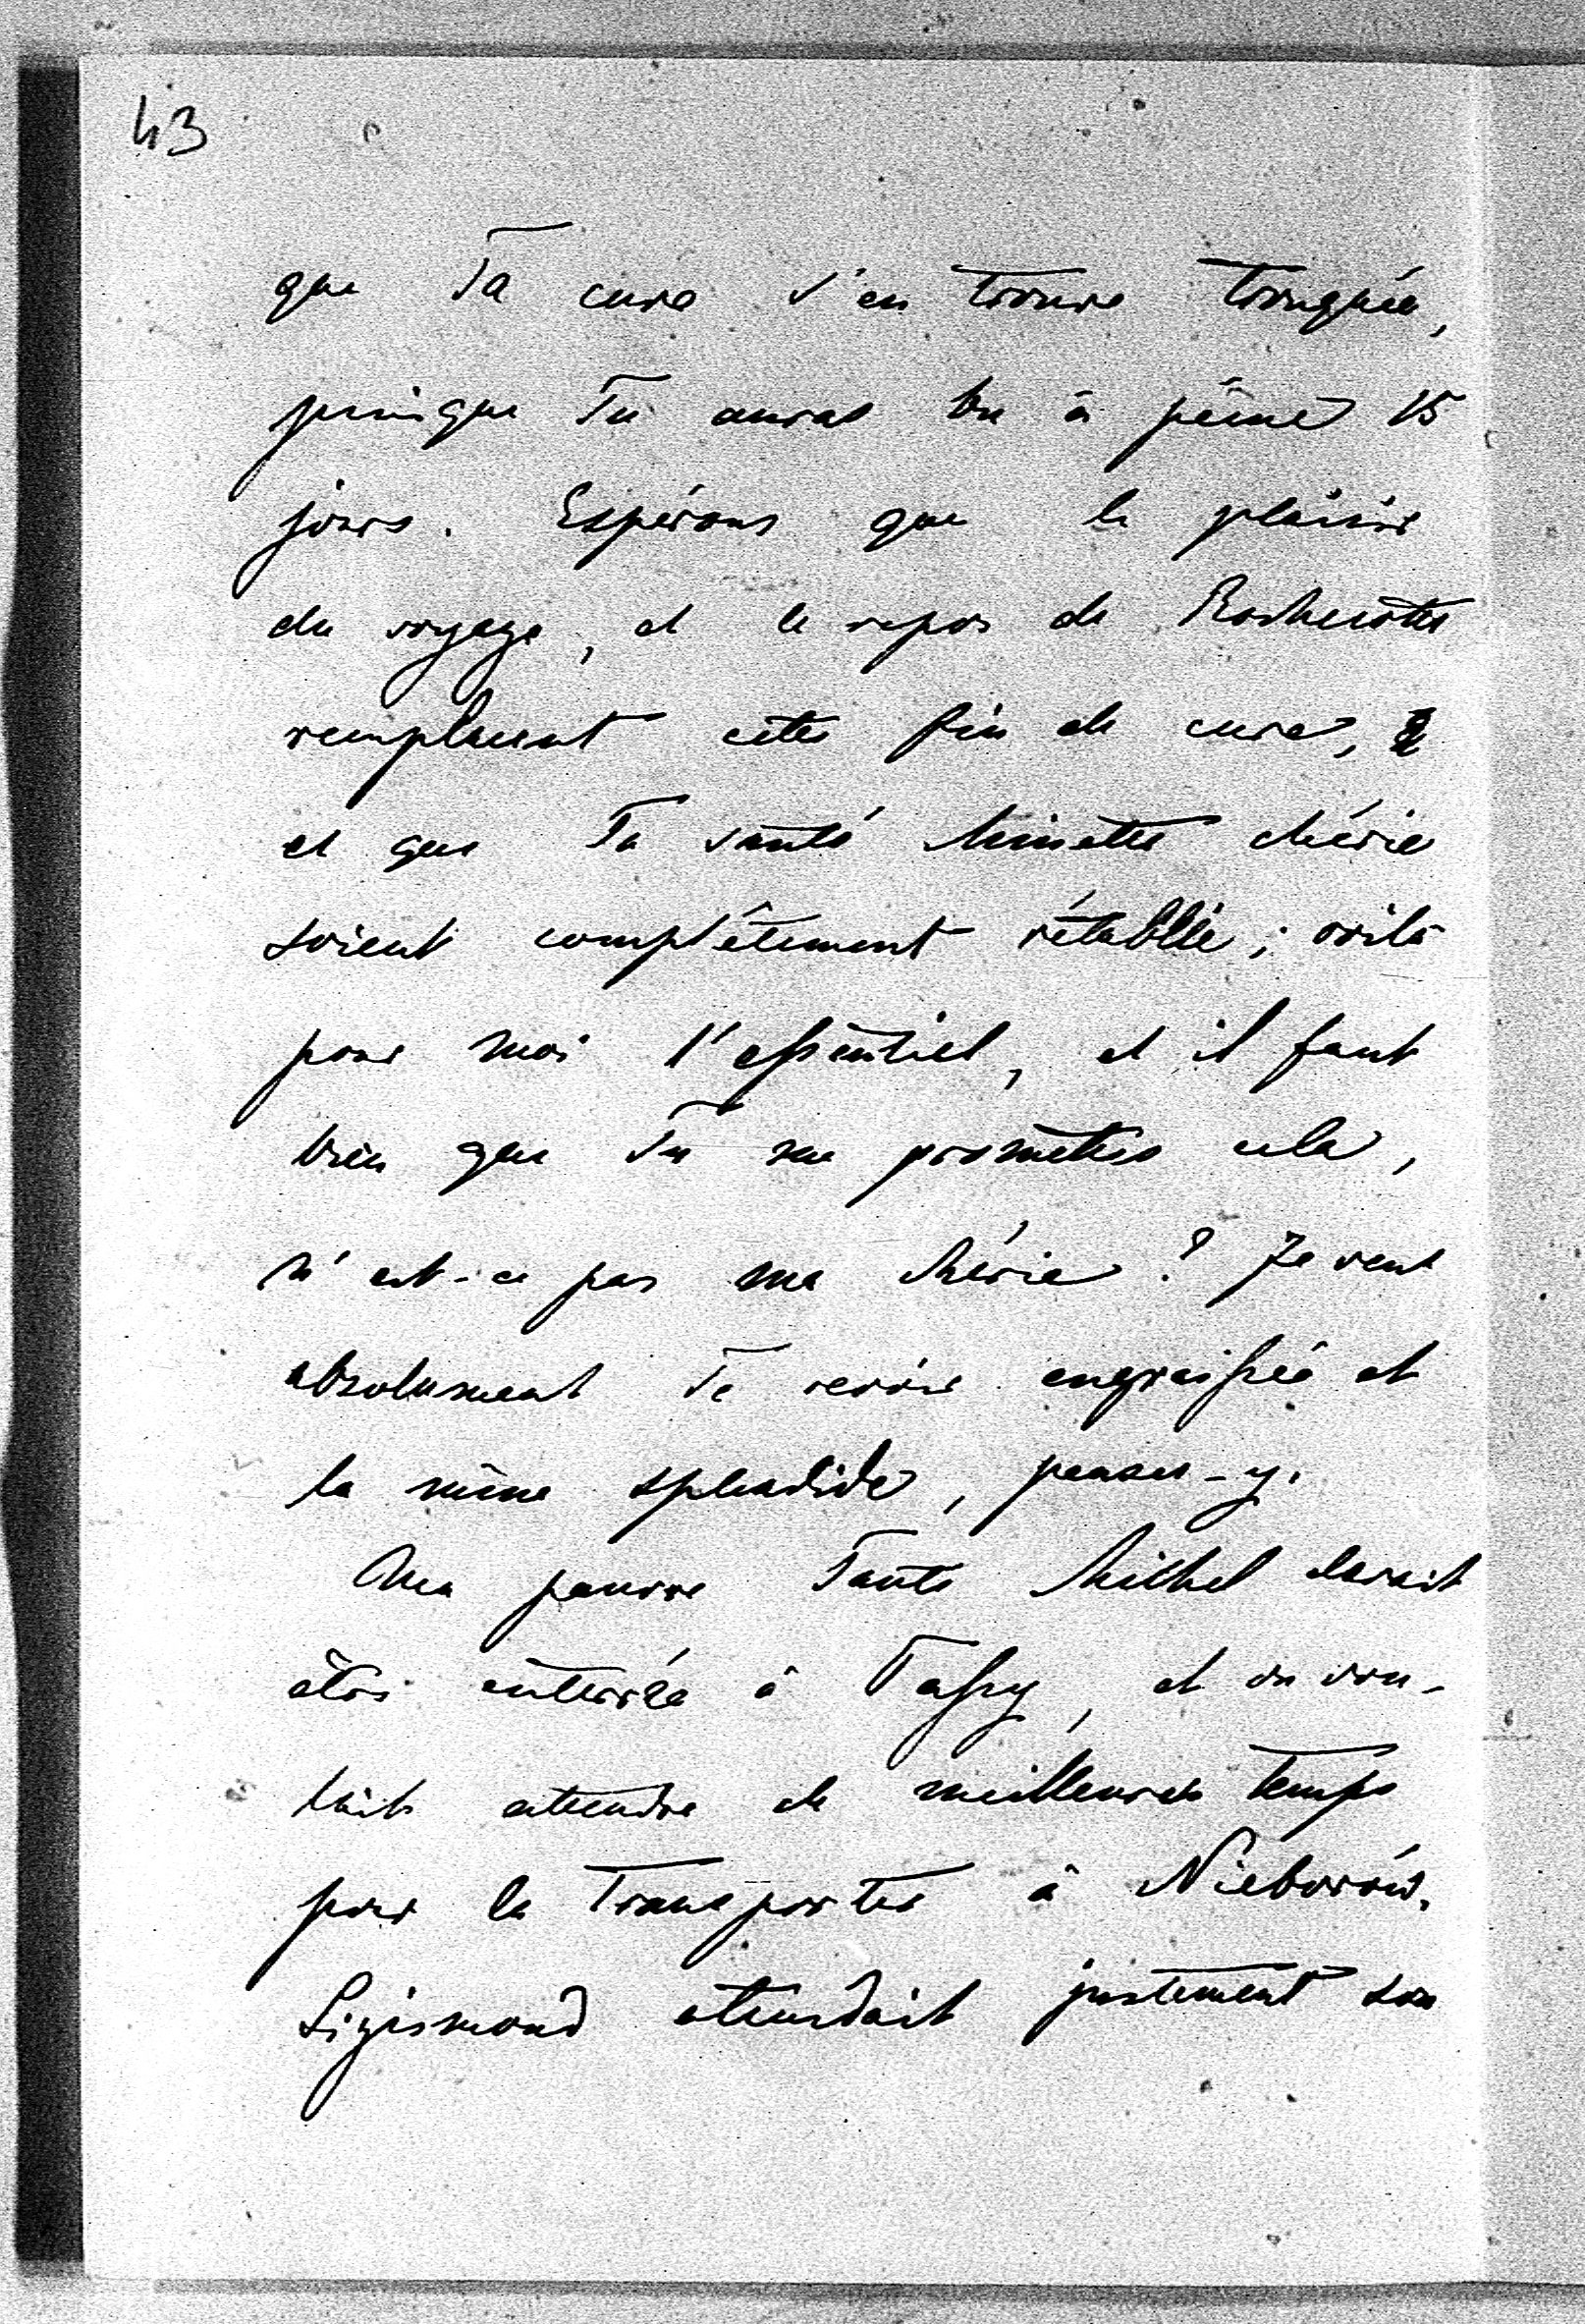 43
que Ta cure s'en trouve tronquée,
puisque Tu auras bu à peine 15
jours. Espérons que le plaisir
du voyage, et le repos de Rochecotte
remplacent cette fin de cure,
et que Ta santé Minette chérie
soient complêtement rétablie; voilà
pour moi l'essentiel, et il faut
bien que Tu me promettes cela,
n'est-ce pas ma chérie? Je veut
absolument Te revoir engraissée et
la mine splendide, penses-y.
Ma pauvre Tante Michel devait
être enterrée à et on vou-
lait attendre de meilleures temps
pour la Transporter à Nieborów.
Sigismond attendait justement son